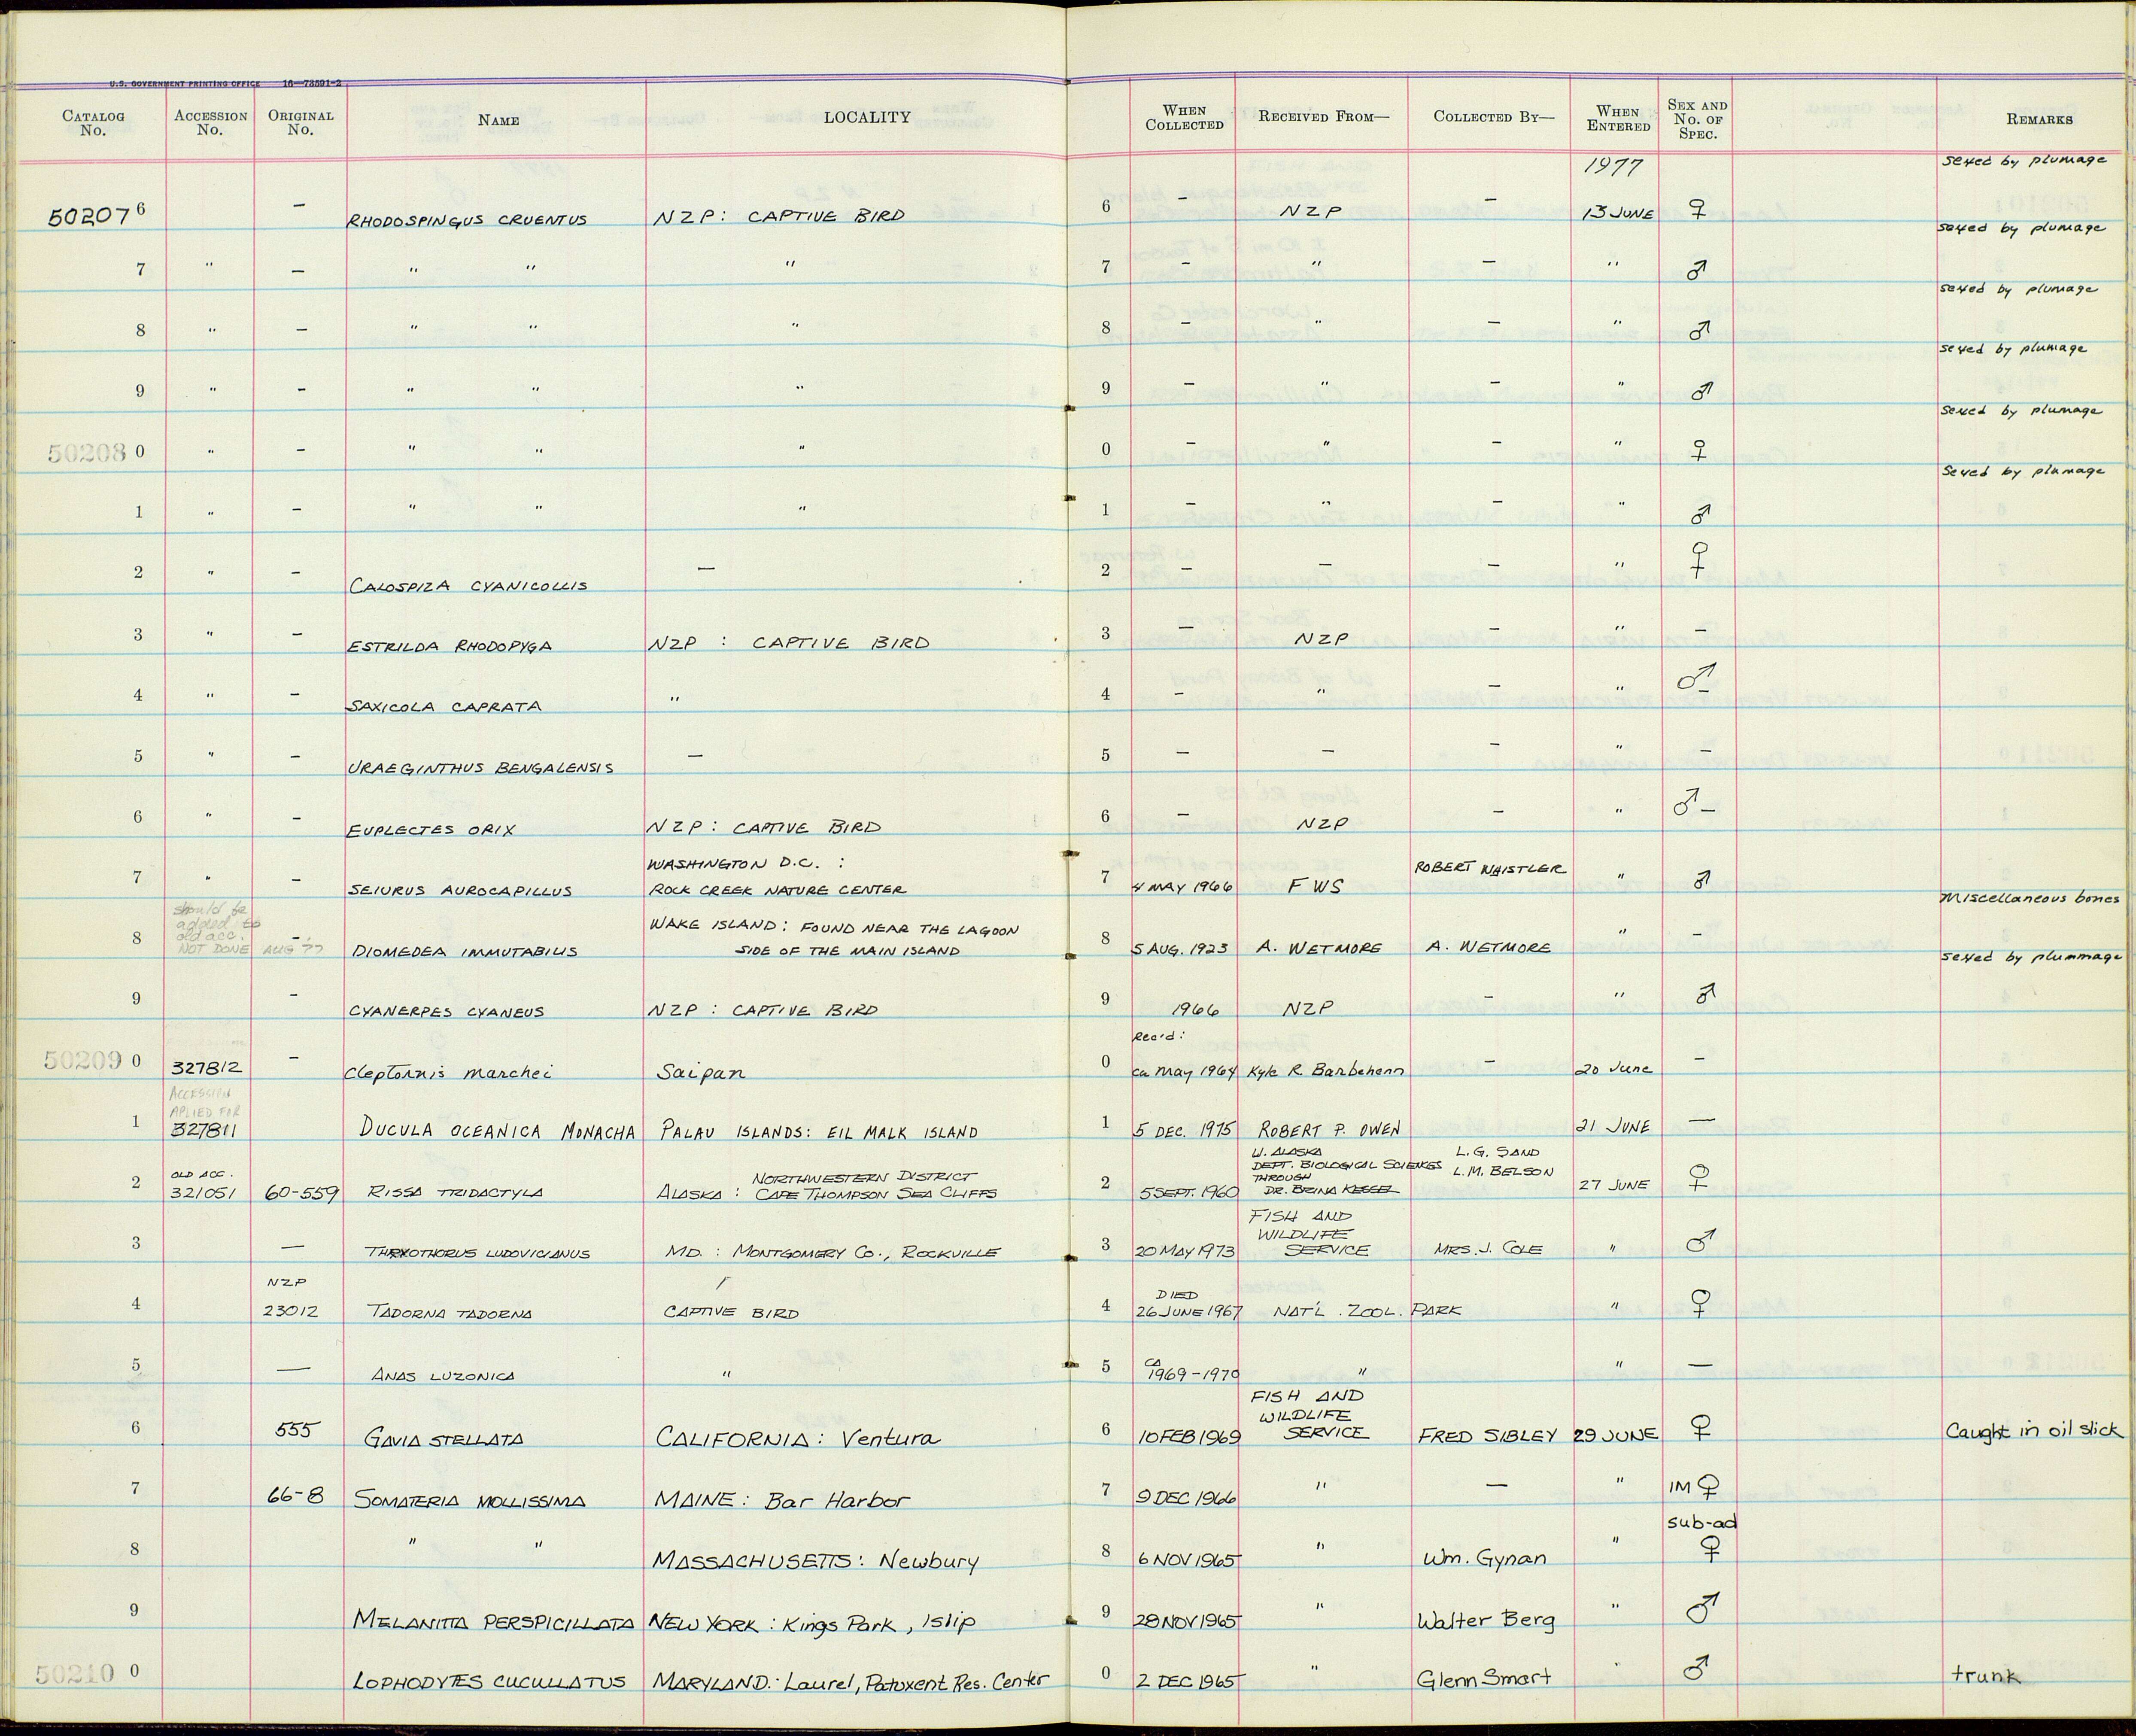 U.S. GOVERNMENT PRINTING OFFICE 16—73591-2
CATALOG No. ACCESSION No. ORIGINAL No. NAME LOCALITY WHEN COLLECTED RECEIVED FROM— COLLECTED BY— WHEN ENTERED SEX AND No. OF SPEC. REMARKS
1977 sexed by plumage
50207 6 – RHODOSPINGUS CRUENTUS NZP: CAPTIVE BIRD 6 – NZP – 13 JUNE ♀
sexed by plumage
7 " – " " " 7 – " – " ♂
sexed by plumage
8 " – " " " 8 – " – " ♂
sexed by plumage
9 " – " " " 9 – " – " ♂
sexed by plumage
50208 0 " – " " " 0 – " – " ♀
sexed by plumage
1 " – " " " 1 – " – " ♂
2 " – CALOSPIZA CYANICOLLIS – 2 – – – " ♀
3 " – ESTRILDA RHODOPYGA NZP : CAPTIVE BIRD 3 – NZP – " –
4 " – SAXICOLA CAPRATA " 4 – " – " ♂–
5 " – URAEGINTHUS BENGALENSIS – 5 – – – " –
6 " – EUPLECTES ORIX NZP: CAPTIVE BIRD 6 – NZP – " ♂–
WASHINGTON D.C. : ROBERT WHISTLER
7 " – SEIURUS AUROCAPILLUS ROCK CREEK NATURE CENTER 7 4 MAY 1966 FWS " ♂
Miscellaneous bones
should be
added to
old acc. WAKE ISLAND: FOUND NEAR THE LAGOON
8 NOT DONE AUG 77 – DIOMEDEA IMMUTABILIS SIDE OF THE MAIN ISLAND 8 5 AUG. 1923 A. WETMORE A. WETMORE " –
sexed by plummage
9 – CYANERPES CYANEUS NZP : CAPTIVE BIRD 9 1966 NZP – " ♂
Rec'd:
50209 0 327812 – Cleptornis marchei Saipan 0 ca May 1964 Kyle R Barbehenn – 20 June –
ACCESSION
APLIED FOR
1 327811 DUCULA OCEANICA MONACHA PALAU ISLANDS: EIL MALK ISLAND 1 5 DEC. 1975 ROBERT P. OWEN 21 JUNE —
U. ALASKA L.G. SAND
OLD ACC. NORTHWESTERN DISTRICT DEPT. BIOLOGICAL SCIENCES L.M. BELSON
THROUGH
2 321051 60-559 RISSA TRIDACTYLA ALASKA : CAPE THOMPSON SEA CLIFFS 2 5 SEPT. 1960 DR. BRINA KESSEL 27 JUNE ♀
FISH AND
WILDLIFE
3 — THRYOTHORUS LUDOVICIANUS MD. : MONTGOMERY CO., ROCKVILLE 3 20 MAY 1973 SERVICE MRS. J. COLE " ♂
NZP DIED
4 23012 TADORNA TADORNA CAPTIVE BIRD 4 26 JUNE 1967 NAT'L . ZOOL. PARK " ♀
CA
5 — ANAS LUZONICA " 5 1969-1970 " " —
FISH AND
WILDLIFE
6 555 GAVIA STELLATA CALIFORNIA: Ventura 6 10 FEB 1969 SERVICE FRED SIBLEY 29 JUNE ♀ Caught in oil slick
7 66-8 SOMATERIA MOLLISSIMA MAINE: Bar Harbor 7 9 DEC 1966 " — " IM ♀
sub-ad
8 " " MASSACHUSETTS: Newbury 8 6 NOV 1965 " Wm. Gynan " ♀
9 MELANITTA PERSPICILLATA NEW YORK: Kings Park, Islip 9 28 NOV 1965 " Walter Berg " ♂
50210 0 LOPHODYTES CUCULLATUS MARYLAND: Laurel, Patuxent Res. Center 0 2 DEC 1965 " Glenn Smart " ♂ trunk